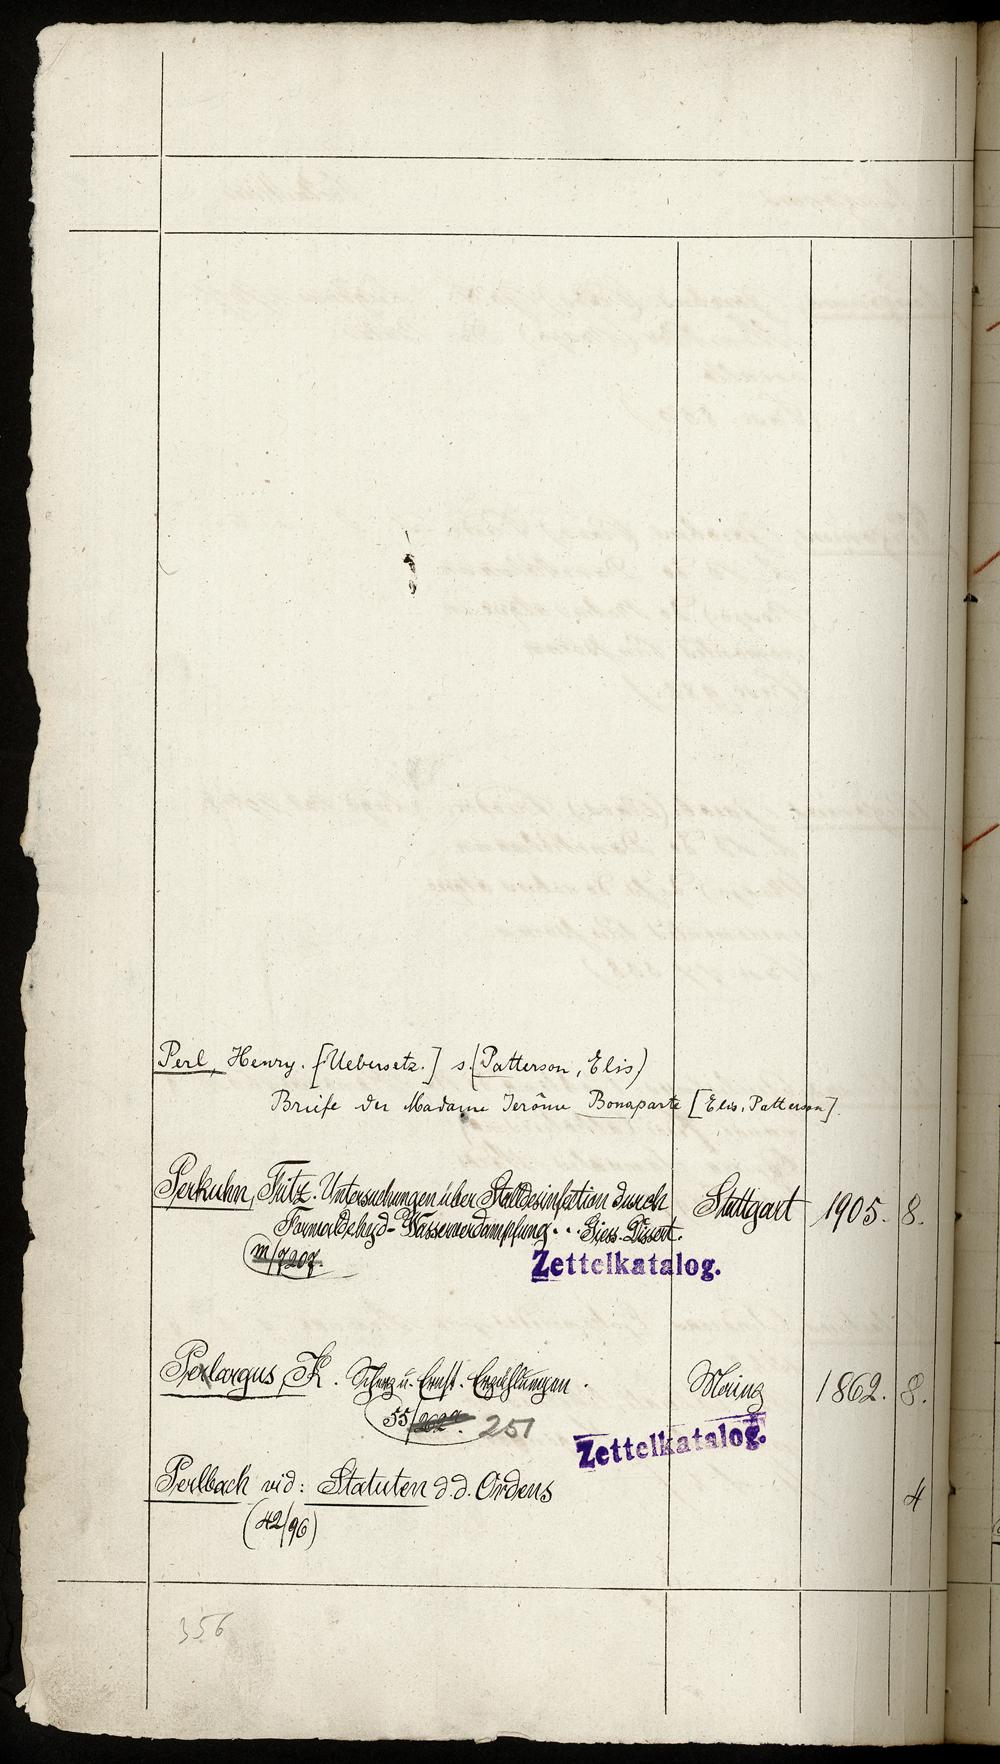 Perl, Henry. [Uebersetz.] s. (Patterson, Elis)
Briefe der Madame Jerôme Bonaparte [Elis. Patterson].
Perkuhn, Fritz. Untersuchungen über Stalldesinfection durch Stuttgart 1905. 8.
Formaldehyd-Wasserverdampfung... Giess. Dissert.
m/7207.
Zettelkatalog.
Perlargus, K. Scherz u. Ernst. Erzählungen. Mainz 1862. 8.
55/ 251
Zettelkatalog.
Perlbach vid: Statuten d. d. Ordens 4
(42/96)
356